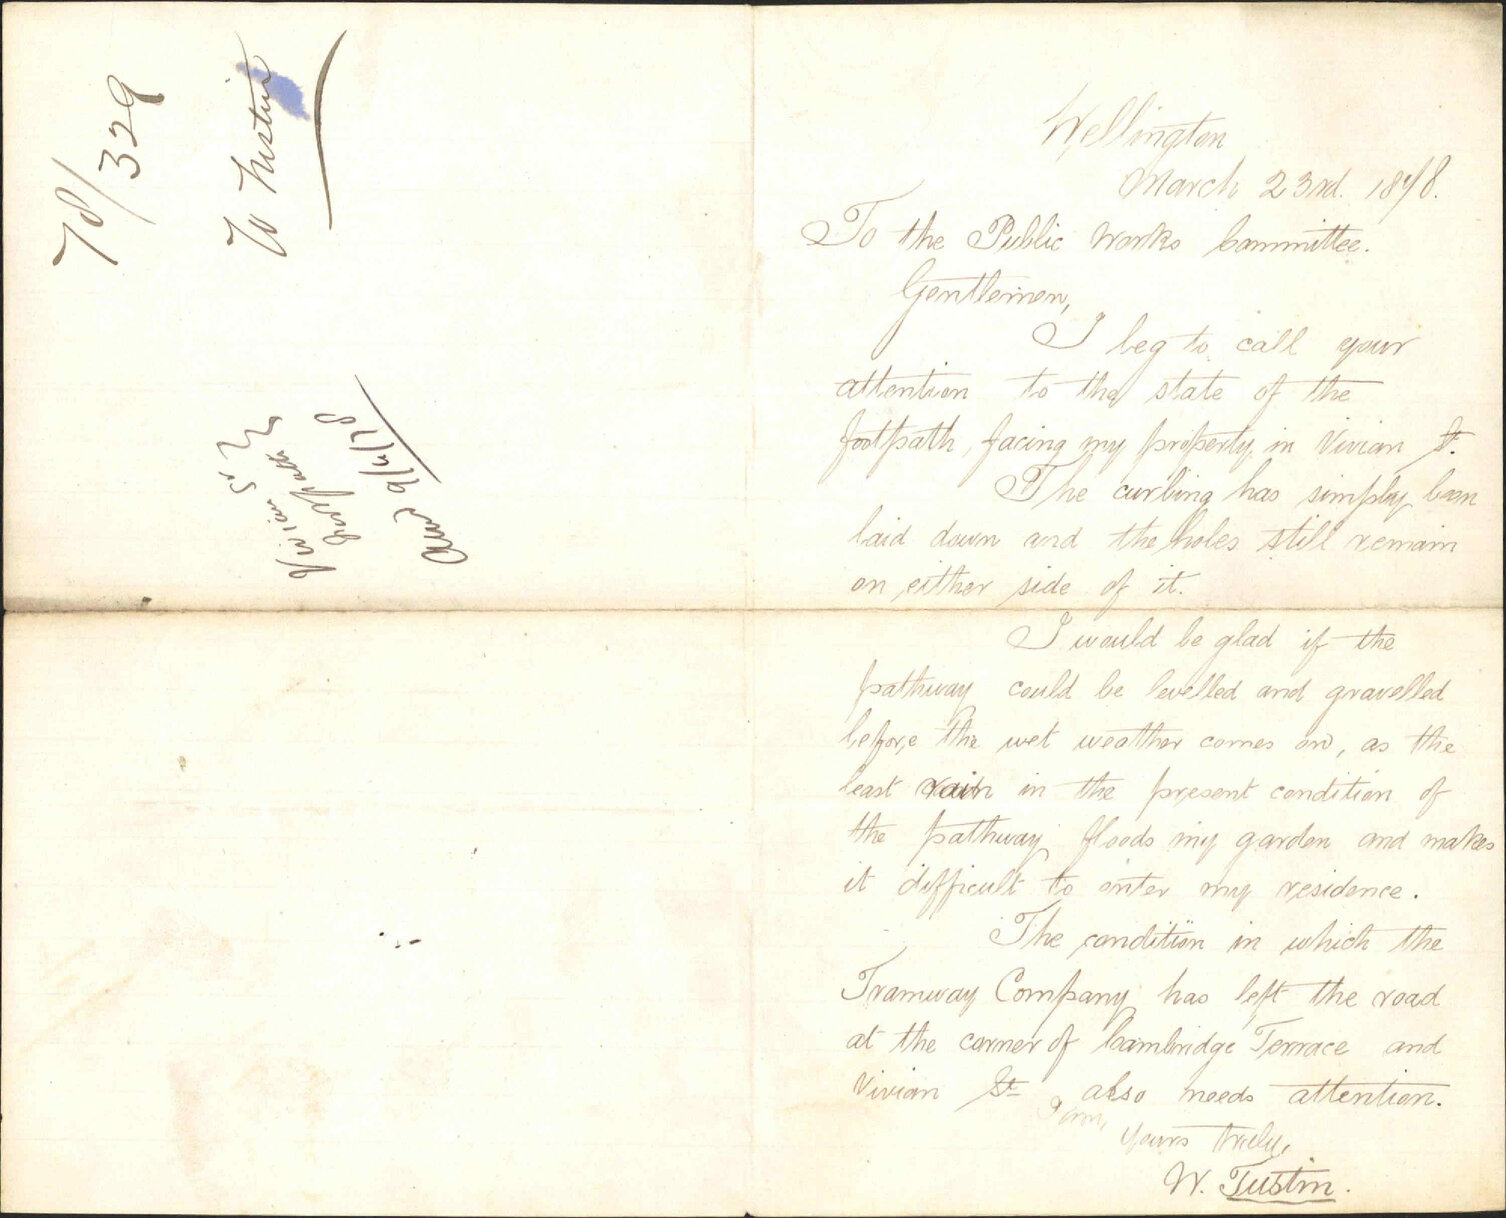 78/329
W Tustin
Vivian St
footpath
9/4/78
Wellington
March 23rd. 1878.
To the Public Works Committee.
Gentlemen,
I beg to call your
attention to the state of the
footpath, facing my property, in Vivian St.
The curbing has simply been
laid down and the holes still remain
on either side of it.
I would be glad if the
pathway could be levelled and gravelled
before the wet weather comes on, as the
least rain in the present condition of
the pathway floods my garden and makes
it difficult to enter my residence.
The condition in which the
Tramway Company has left the road
at the corner of Cambridge Terrace and
Vivian St also needs attention.
I am,
Yours truly,
W. Tustin.